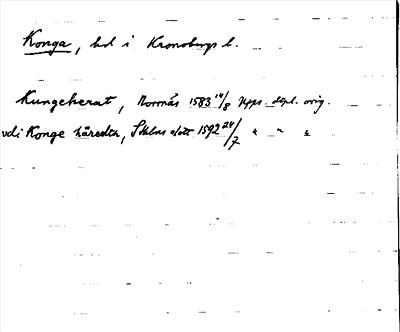 Konga, hd i Kronobergs l.
Kungeherat, Normås 1583 14/8 Upps. dipl. orig.
vdi Konge häredtn, Sthlms slott 1592 24/7 " " "